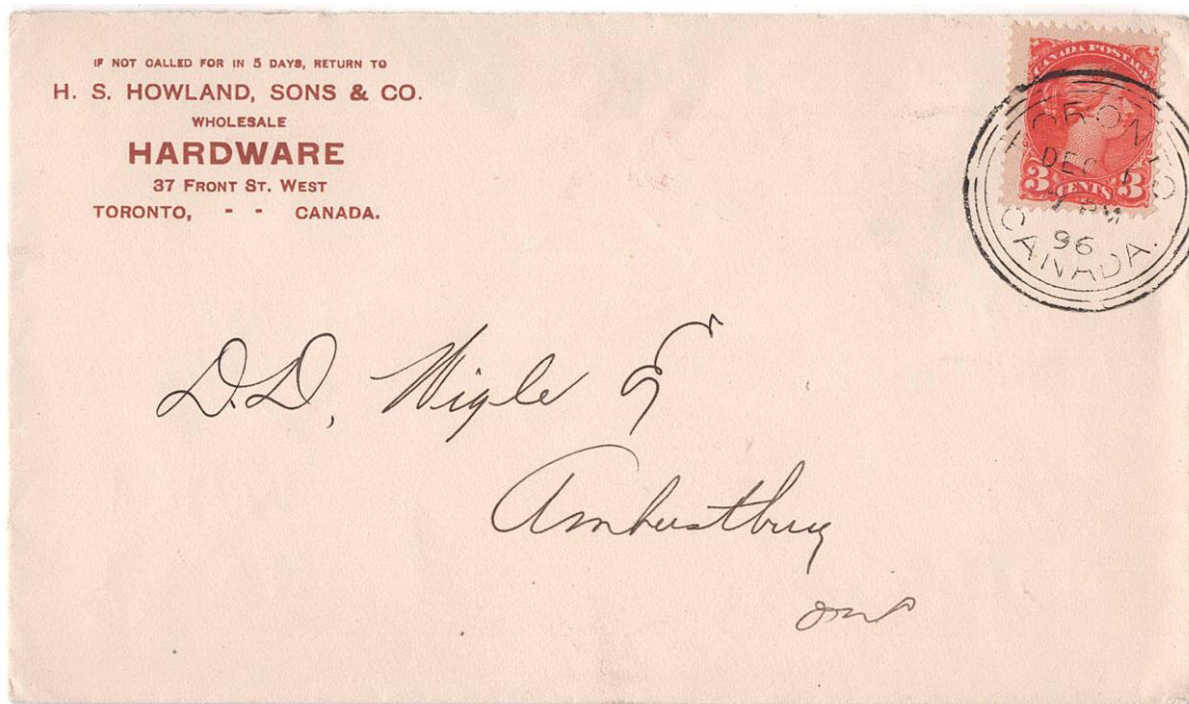 IF NOT CALLED FOR IN 5 DAYS, RETURN TO
H. S. HOWLAND, SONS & CO.
WHOLESALE
HARDWARE
37 FRONT ST. WEST
TORONTO, - - CANADA.
CANADA POSTAGE
3 CENTS 3
TORONTO
DEC 1
PM
96
CANADA.
D.D. Wigle
Amherstburg
Ont